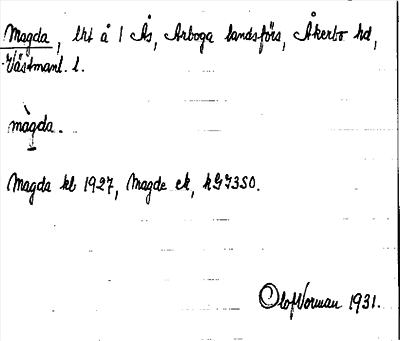 Magda, lht å 1 Ås, Arboga landsförs, Åkerbo hd,
Västmanl. l.
màgda.
Magda kb 1927, Magde ek, kGJ350.
Olof Norman 1931.